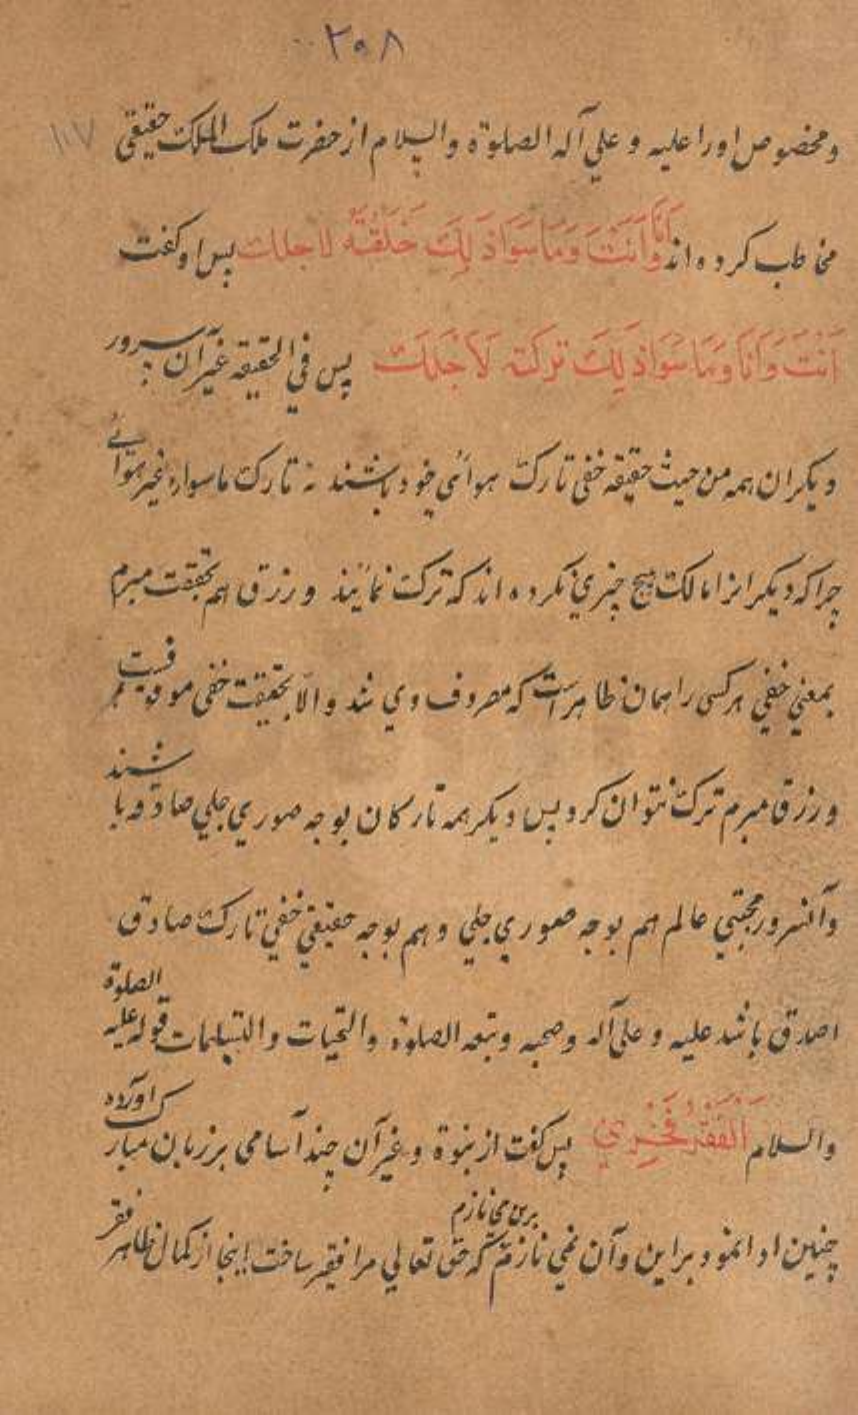 ۳۰۸
۱۰۷
ومخصوص اورا علیه و علی آله الصلوة والسلام از حضرت ملک الملک حقیقی
مخاطب کرده اند اَنَا وَاَنْتَ وَمَا سَوَا ذٰلِكَ خَلَقْتُهُ لاجلك پس او کفت
اَنْتَ وَاَنَا وَمَا سَوَا ذٰلِكَ تركته لَاَجْلِكَ پس فی الحقیقه غیر آن سرور
دیکران همه من حیث حقیقه خفی تارک هوائی خود باشند نه تارک ماسواء غیر هوائے
چرا که دیکرانرا مالک هیچ چیزی نکرده اند که ترک نمایند ورزق هم بحقیقت مبرم
بمعنی خفی هر کسی را همان ظاهر است که مصروف وی شد والا بحقیقت خفی موقتیست
ورزق مبرم ترک نتوان کرد پس دیکر همه تارکان بوجه صوری جلی صادق باشند
وآنسرور مجتبی عالم هم بوجه صوری جلی و هم بوجه حقیقی خفی تارک صادق
اصدق باشد علیه و علی آله وصحبه وتبعه الصلوة والتحیات والتسلیمات قوله علیه الصلوة
والسلام اَلْفَقْرُ فَخْرِي پس کفت از نبوة وغیر آن چند آسامی بر زبان مبارک آورده
چنین ادا نمود براین وآن نمی نازم برین می نازم که حق تعالی مرا فقیر ساخت اینجا از کمال ظاهر فقر